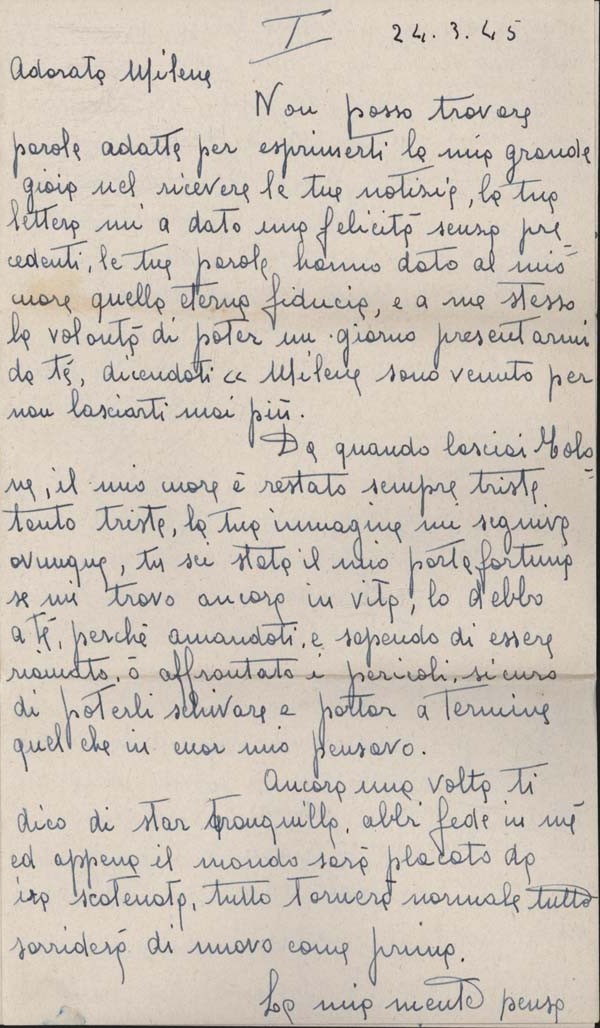 I 24.3.45
Adorata Milena
Non posso trovare
parole adatte per esprimerti la mia grande
gioia nel ricevere le tue notizie, la tua
lettera mi a dato una felicità senza pre=
cedenti, le tue parole hanno dato al mio
cuore quella eterna fiducia, e a me stesso
la volontà di poter un giorno presentarmi
da te, dicendoti << Milena sono venuto per
non lasciarti mai più.
Da quando lasciai
ne, il mio cuore è restato sempre triste
tanto triste, la tua immagine mi seguiva
ovunque, tu sei stata il mio portafortuna
se mi trovo ancora in vita, lo debbo
a tè, perchè amandoti, e sapendo di essere
riamato, ò affrontato i pericoli, sicuro
di poterli schivare e portar a termine
quel che in cuor mio pensavo.
Ancora una volta ti
dico di star tranquilla, abbi fede in mè
ed appena il mondo sarà placato da
ira scatenata, tutto tornerà normale tutto
sorriderà di nuovo come prima.
La mia mente pensa